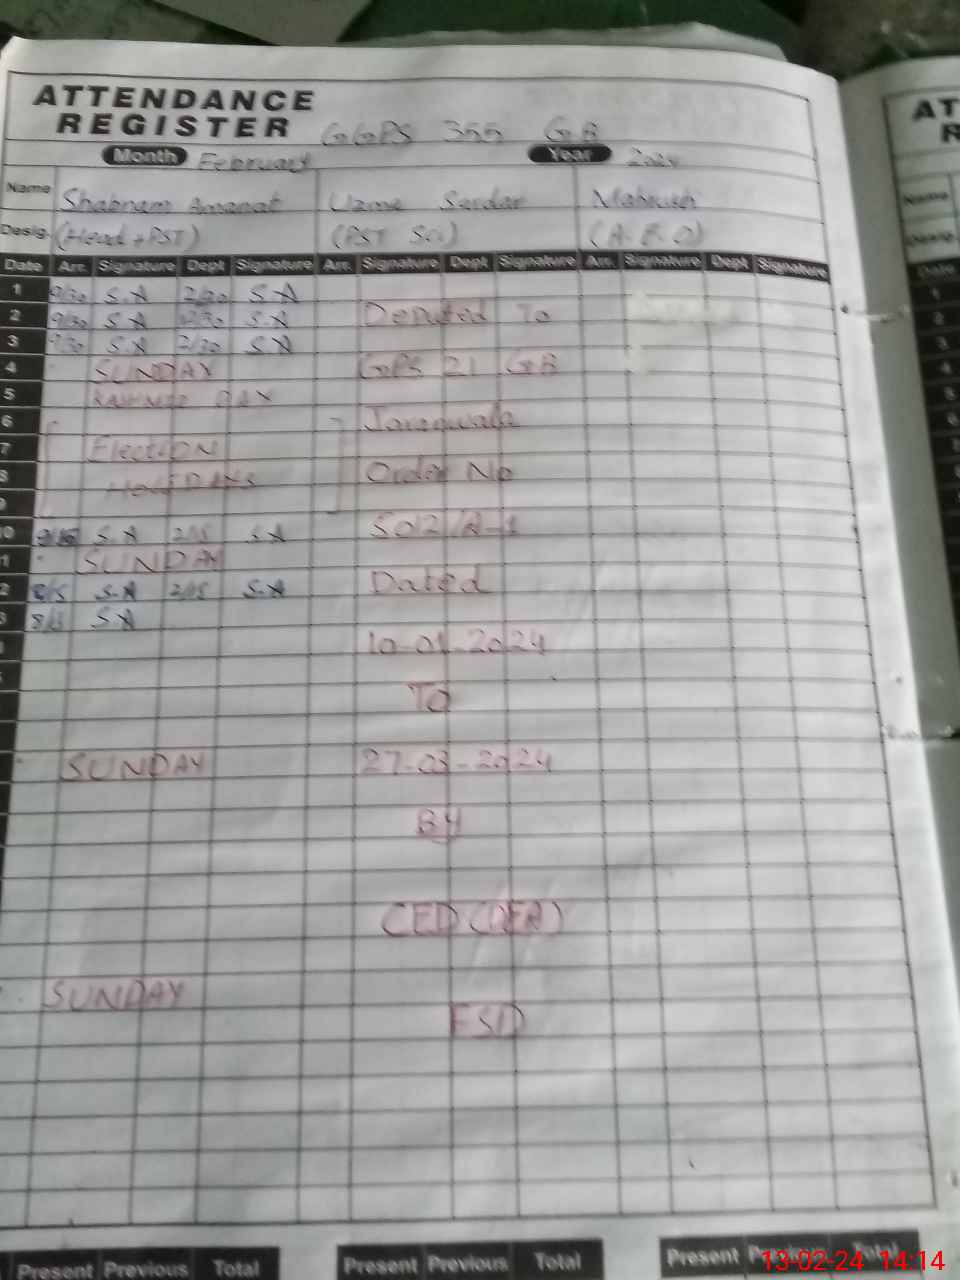 ATTENDANCE
REGISTER GGPS 355 GB
Month February Year 2024
Name Shabnam Amanat Uzma Sardar Mahwish
Desig. (Head+PST) (PST Sci) (A.E.O)
Date Arr. Signature Dept Signature Arr. Signature Dept Signature Arr. Signature Dept Signature
1 9/30 S.A 2/30 S.A
2 9/30 S.A 12/30 S.A Deputed To
3 9/30 S.A 2/30 S.A
4 SUNDAY GPS 21 GB
5 DAY
6 Jaranwala
7 Election
8 HOLIDAYS Order No
9
10 S.A 2/15 S.A 5012/A-1
11 SUNDAY
12 8/15 S.A 2/15 S.A Dated
13 S.A
10-01-2024
TO
SUNDAY 27-03-2024
BY
CEO (DEA)
SUNDAY
FSD
Present Previous Total Present Previous Total Present Previous Total
13-02-24 14:14